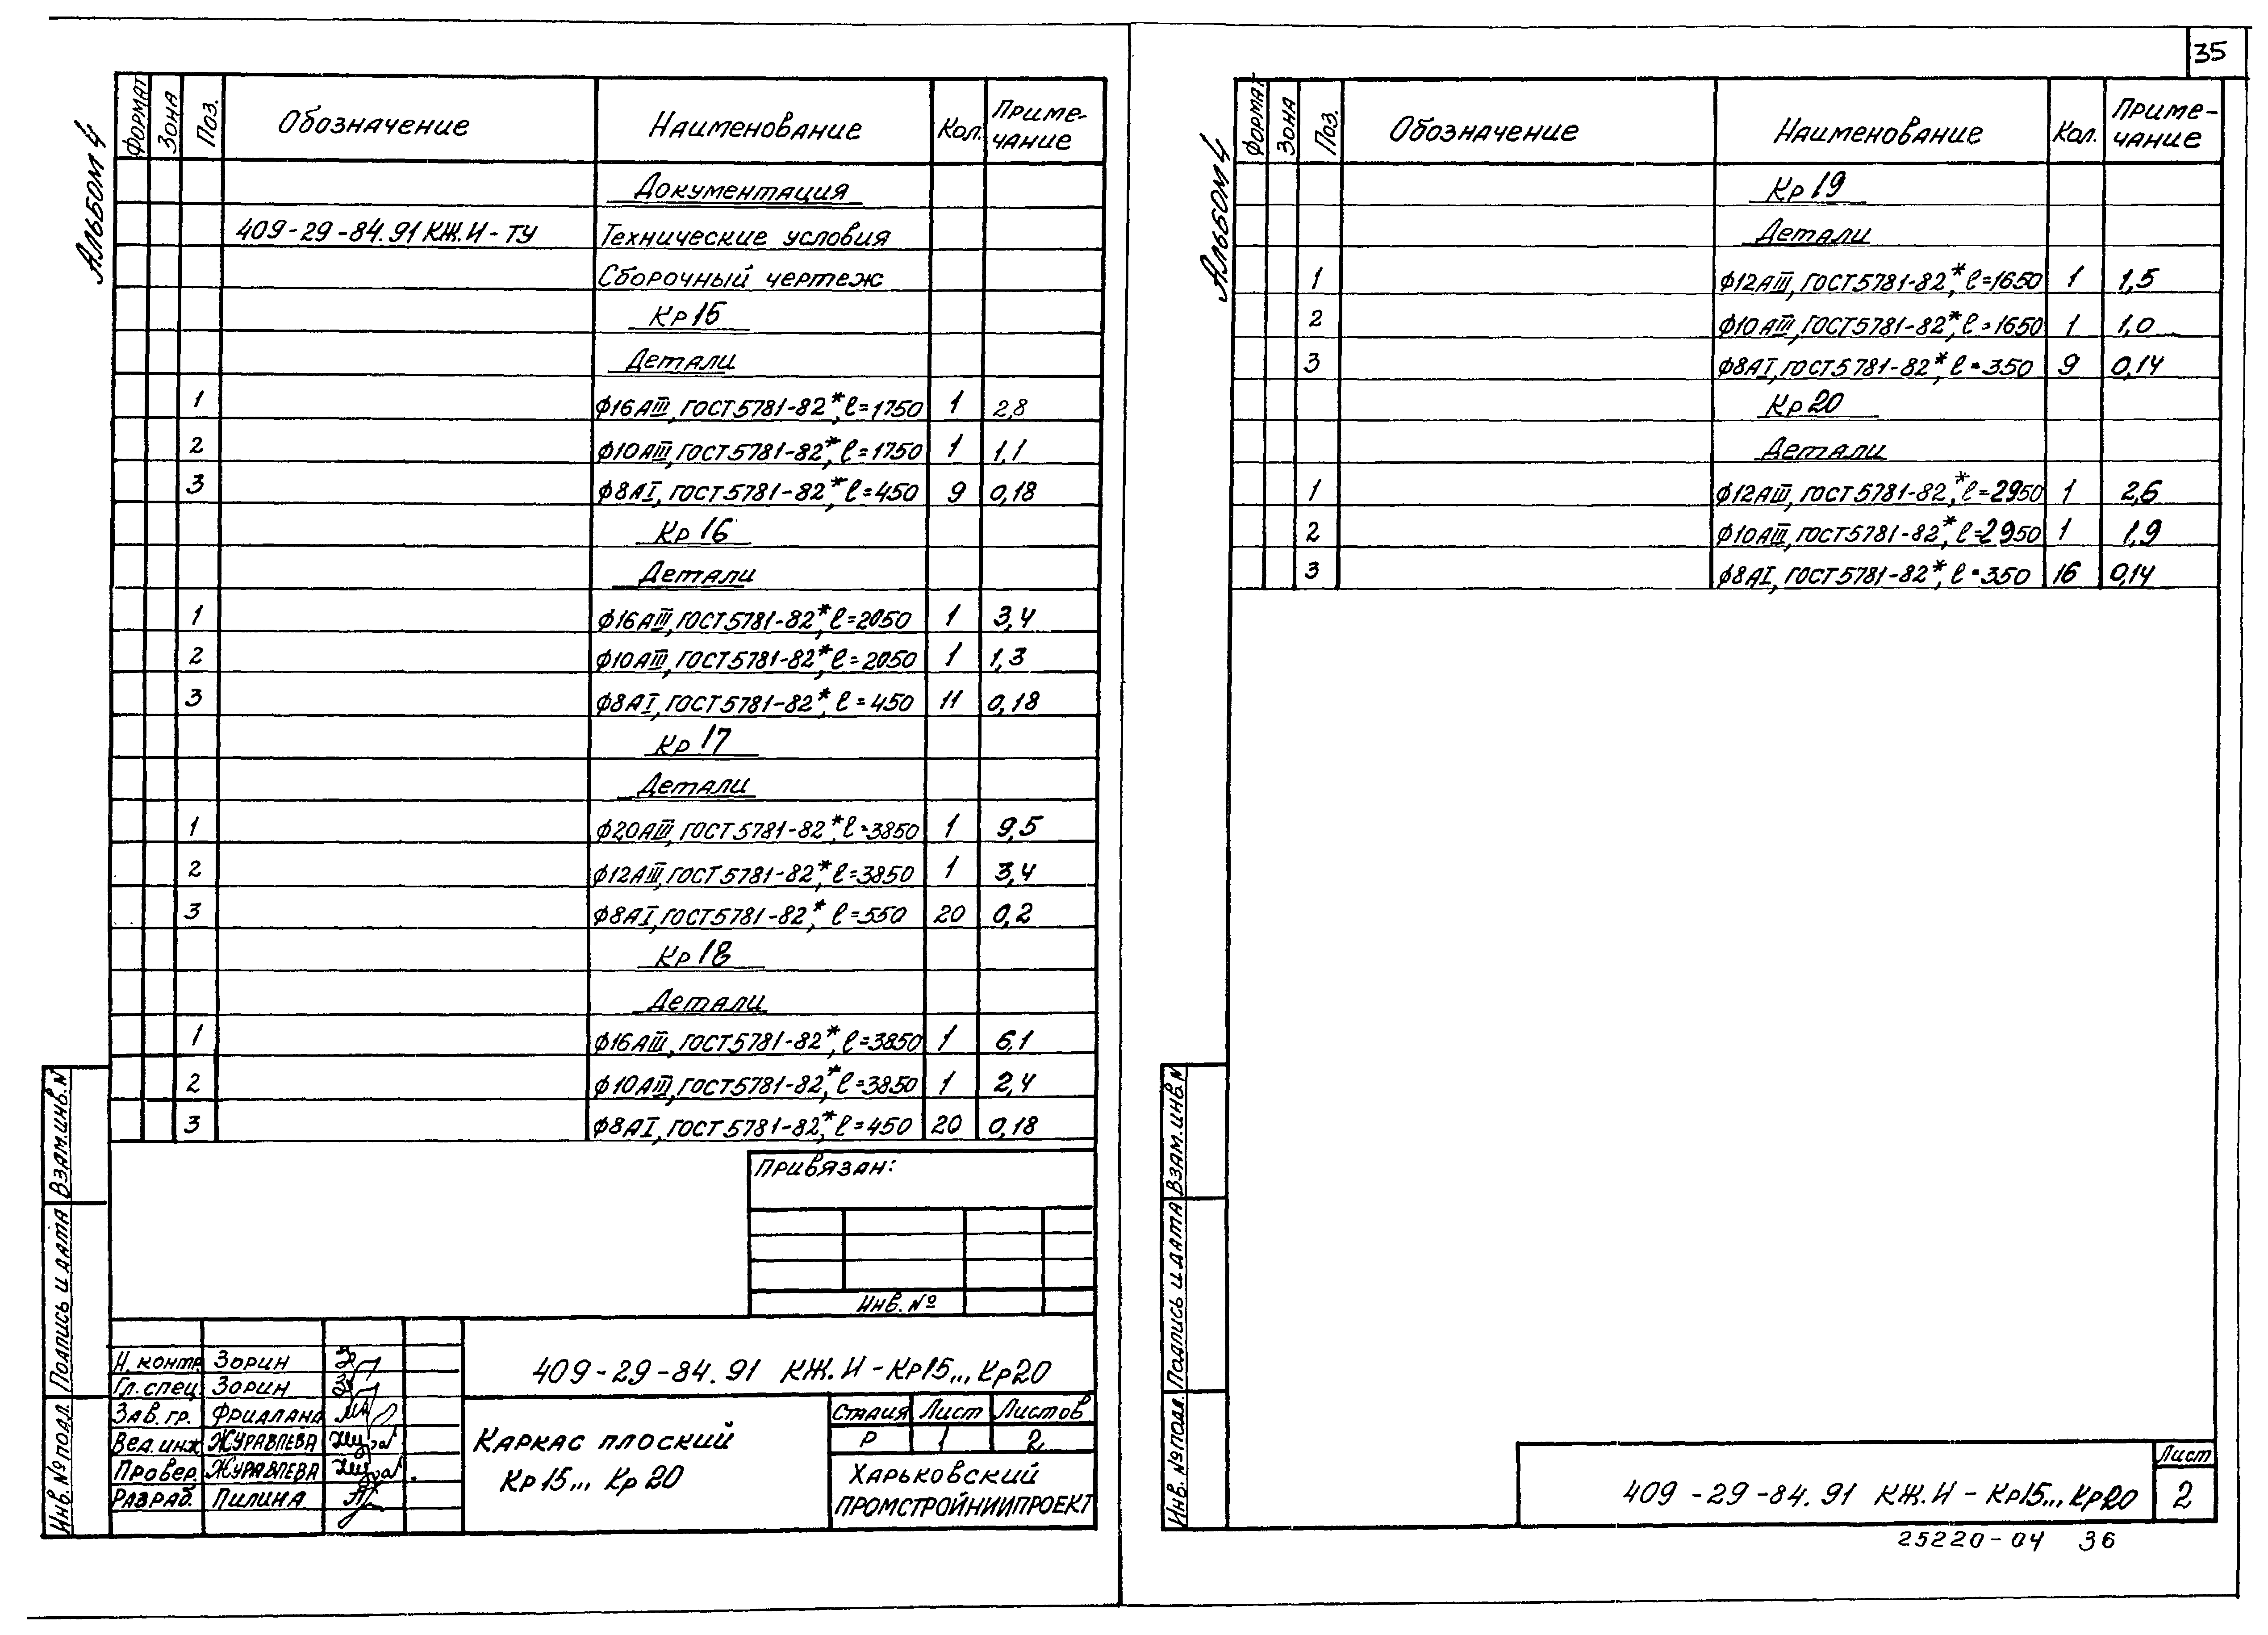 Альбом 4
Формат Зона Поз. Обозначение Наименование Кол. Приме-
чание
Документация
409-29-84.91 КЖ.И-ТУ Технические условия
Сборочный чертеж
Кр 15
Детали
1 ф16АIII, ГОСТ 5781-82*, ℓ=1750 1 2,8
2 ф10АIII, ГОСТ 5781-82*, ℓ=1750 1 1,1
3 ф8АI, ГОСТ 5781-82*, ℓ=450 9 0,18
Кр 16
Детали
1 ф16АIII, ГОСТ 5781-82*, ℓ=2050 1 3,4
2 ф10АIII, ГОСТ 5781-82*, ℓ=2050 1 1,3
3 ф8АI, ГОСТ 5781-82*, ℓ=450 11 0,18
Кр 17
Детали
1 ф20АIII, ГОСТ 5781-82*, ℓ=3850 1 9,5
2 ф12АIII, ГОСТ 5781-82*, ℓ=3850 1 3,4
3 ф8АI, ГОСТ 5781-82*, ℓ=550 20 0,2
Кр 18
Детали
1 ф16АIII, ГОСТ 5781-82*, ℓ=3850 1 6,1
2 ф10АIII, ГОСТ 5781-82*, ℓ=3850 1 2,4
3 ф8АI, ГОСТ 5781-82*, ℓ=450 20 0,18
Привязан:
Инв. №
Взам.инв.N
Подпись и дата
Инв. № подл.
Н. контр. Зорин
Гл. спец. Зорин
Зав. гр. Фридлана
Вед. инж. Журавлева
Провер. Журавлева
Разраб. Пилина
409-29-84.91 КЖ.И-Кр15... Кр20
Каркас плоский
Кр 15... Кр 20
Стадия Лист Листов
Р 1 2
Харьковский
ПРОМСТРОЙНИИПРОЕКТ
35
Альбом 4
Формат Зона Поз. Обозначение Наименование Кол. Приме-
чание
Кр 19
Детали
1 ф12АIII, ГОСТ 5781-82*, ℓ=1650 1 1,5
2 ф10АIII, ГОСТ 5781-82*, ℓ=1650 1 1,0
3 ф8АI, ГОСТ 5781-82*, ℓ=350 9 0,14
Кр 20
Детали
1 ф12АIII, ГОСТ 5781-82*, ℓ=2950 1 2,6
2 ф10АIII, ГОСТ 5781-82*, ℓ=2950 1 1,9
3 ф8АI, ГОСТ 5781-82*, ℓ=350 16 0,14
Взам.инв.N
Подпись и дата
Инв. № подл.
409-29-84.91 КЖ.И-Кр15... Кр20
Лист
2
25220-04 36